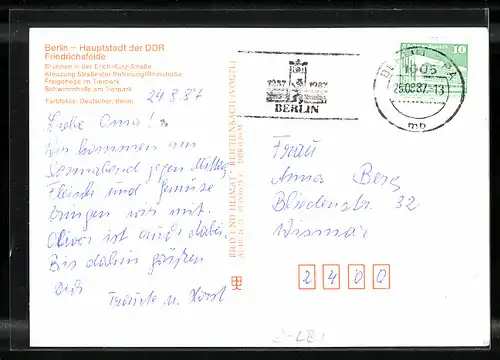 Berlin – Hauptstadt der DDR
Friedrichsfelde
Brunnen in der Erich-Kurz-Straße
Kreuzung Straße der Befreiung/Rhinstraße
Freigehege im Tierpark
Schwimmhalle am Tierpark
Farbfotos: Deutscher, Berlin
24.8.87
Liebe Oma!
Wir kommen am
Sonnabend gegen Mittag.
Fleisch und Gemüse
bringen wir mit.
Oliver ist auch dabei.
Bis dahin grüßen
Dich
Traute u. Horst
BILD UND HEIMAT REICHENBACH (VOGTL)
1237 1987
BERLIN
1085
25.08.87-13
mp
10
Frau
Anna Berg
Bliedenstr. 32
Wismar
2400